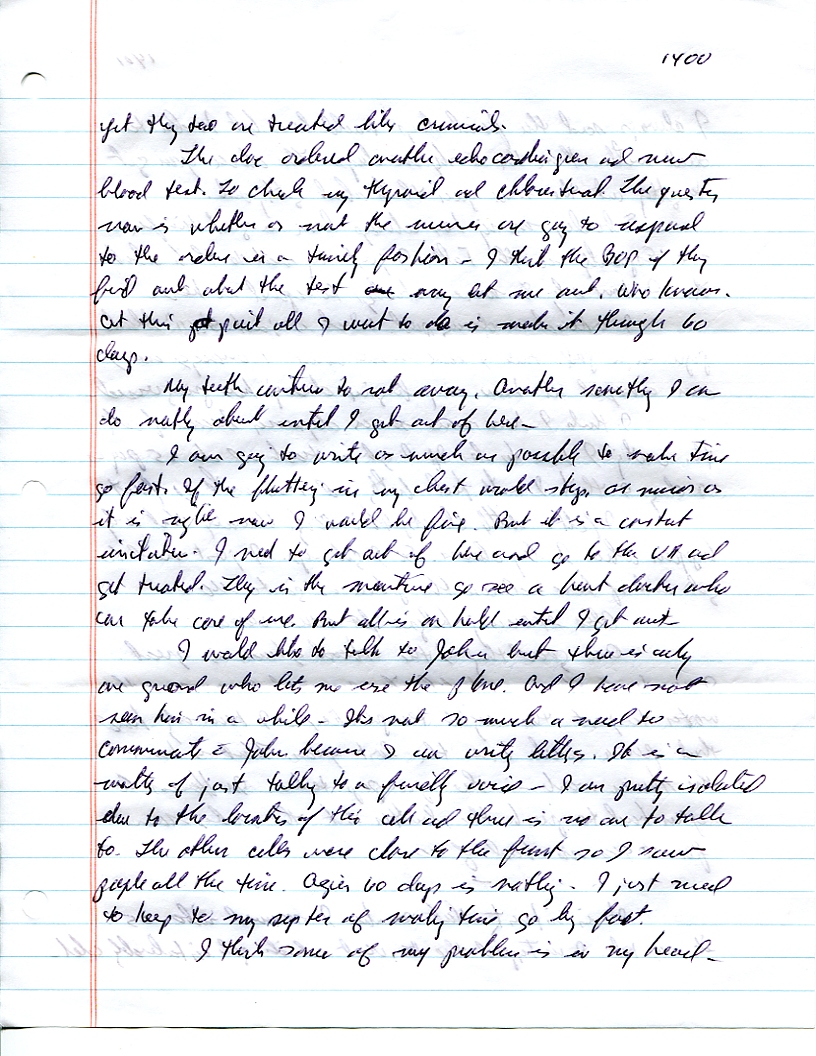 1400
yet they too are treated like criminals.
The doc ordered another echocardiogram and new
blood test. To check my thyroid and chloresteral. The question
now is whether or not the nurses are going to respond
to the orders in a timely fashion - I think the BOP if they
find out what the test may let me out. Who knows.
At this point all I want to do is make it through 60
days.
My teeth continue to rot away. Another something I can
do nothing about until I get out of here -
I am going to write as much as possible to make time
go fast. If the fluttering in my chest would stop, as minor as
it is right now I would be fine. But it is a constant
irritation. I need to get out of here and go to the VA and
get treated. They in the meantime go see a heart doctor who
can take care of me. But all is on hold until I get out -
I would like to talk to John but there is only
one guard who lets me use the phone. And I have not
seen him in a while - Its not so much a need to
communicate c John because I can write letters. It is a
matter of just talking to a friendly voice - I am pretty isolated
due to the location of this cell and there is no one to talk
to. The other cells were close to the front so I saw
people all the time. Again 60 days is nothing. I just need
to keep to my system of making time go by fast.
I think some of my problem is in my head -